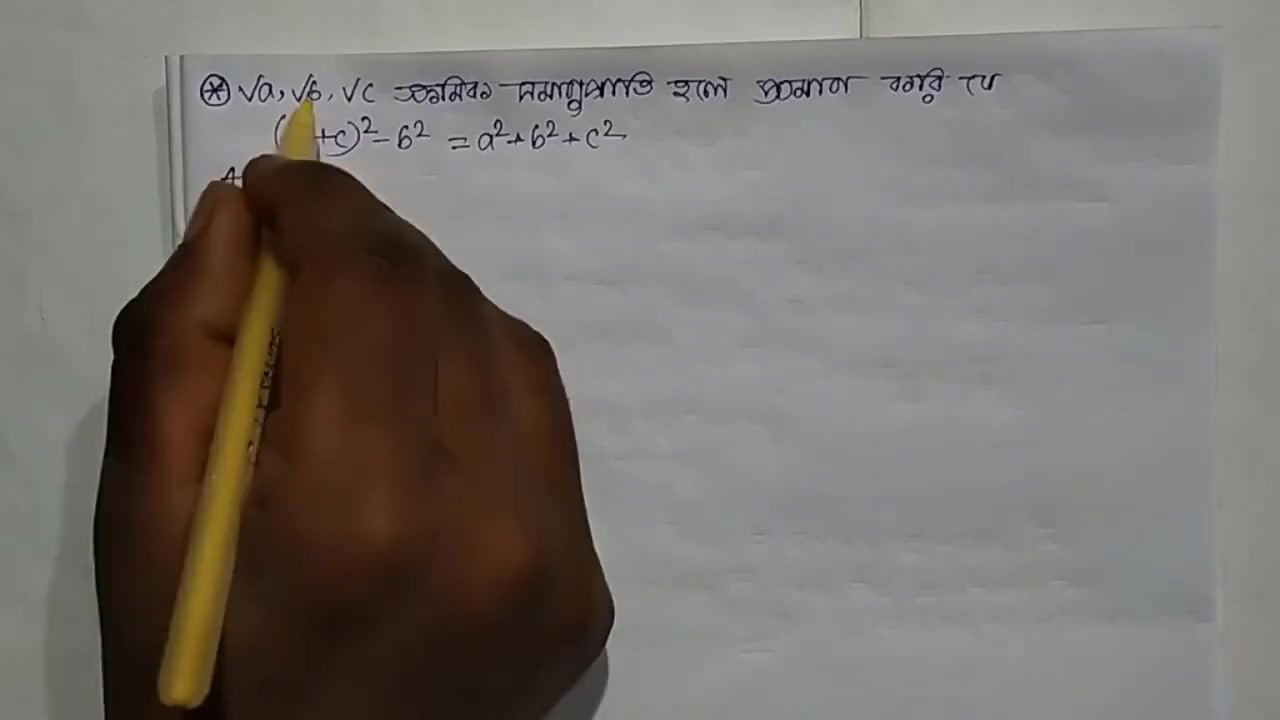 ⊛ √a, √b, √c ক্রমিক সমানুপাতি হলে প্রমাণ করি যে
( +c)² - b² = a² + b² + c²
A